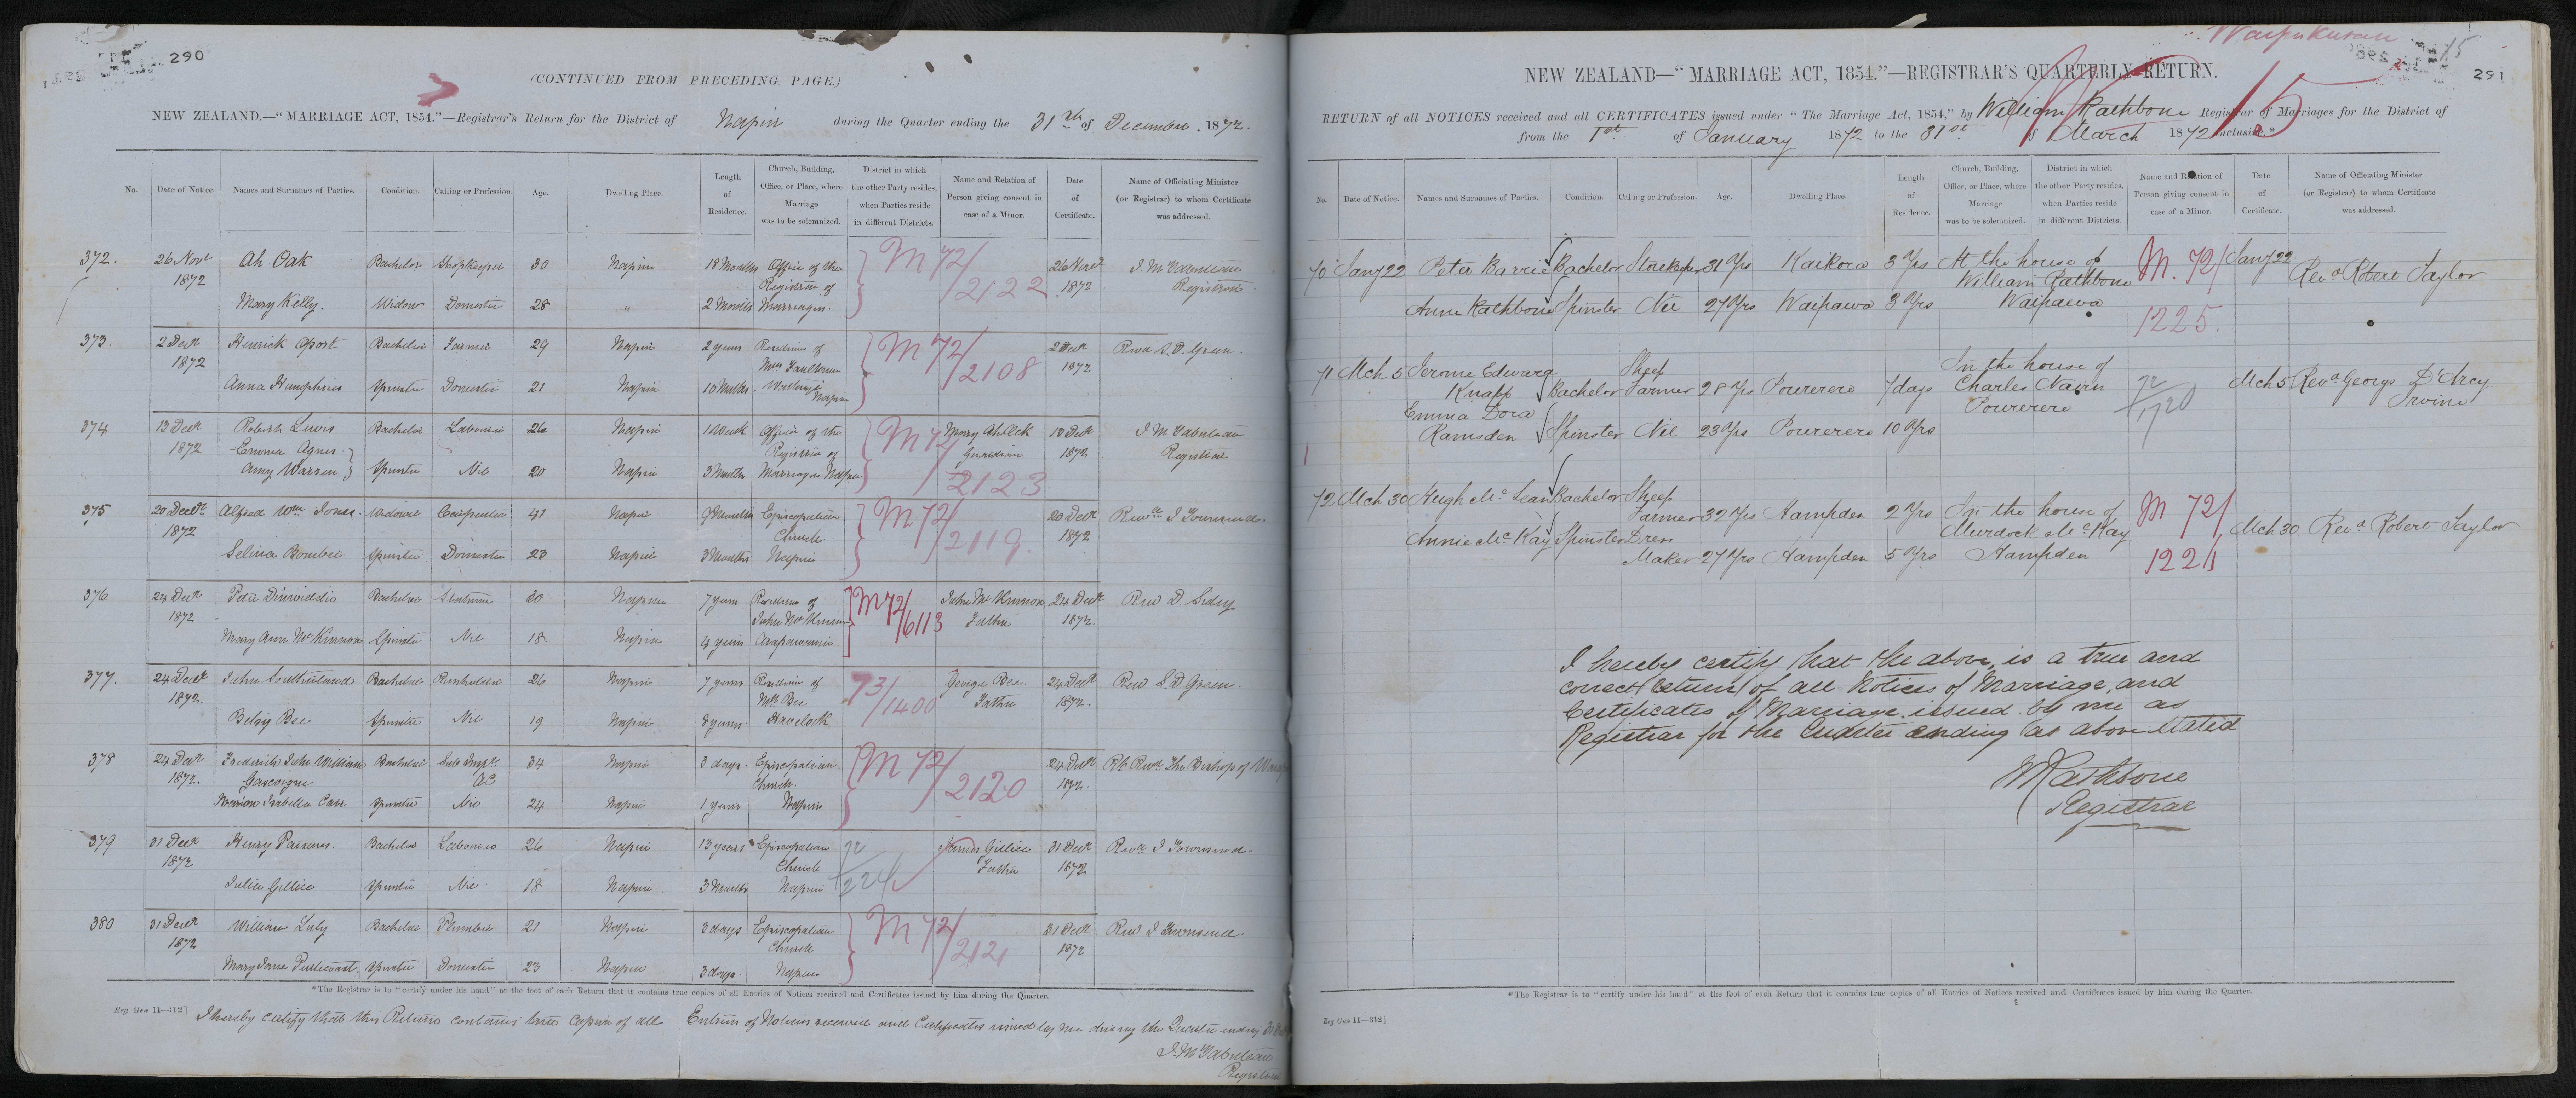 290
(CONTINUED FROM PRECEDING PAGE.)
NEW ZEALAND.—"MARRIAGE ACT, 1854."—Registrar's Return for the District of Napier during the Quarter ending the 31st of December. 1872.
No. Date of Notice. Names and Surnames of Parties. Condition. Calling or Profession. Age. Dwelling Place. Length of Residence. Church, Building, Office, or Place, where Marriage was to be solemnized. District in which the other Party resides, when Parties reside in different Districts. Name and Relation of Person giving consent in case of a Minor. Date of Certificate. Name of Officiating Minister (or Registrar) to whom Certificate was addressed.
372. 26 Novr Ah Oak Bachelor Shopkeeper 30 Napier 18 Months Office of the M 72/2122 26 Novr
1872 Registrar of 1872 Registrar
Mary Kelly. Widow Domestic 28 " 2 Months Marriages.
373. 2 Decr Henrick Bachelor Farmer 29 Napier 2 years Residence of M 72/2108 2 Decr Revd S. D. Green.
1872 Mrs Faulknor 1872
Anna Humphries Spinster Domestic 21 Napier 10 Months Napier
374 13 Decr Robert Lewis Bachelor Labourer 26 Napier 1 Week Office of the M 72/2123 Mary 13 Decr
1872 Emma Agnes Registrar of Guardian 1872 Registrar
Amy Warren Spinster Nil 20 Napier 3 Months Marriages Napier
375 20 Decr Alfred Wm Jones. Widower Carpenter 41 Napier 9 Months Episcopalian M 72/2119. 20 Decr Revd J Townsend.
1872 Church 1872
Selina Spinster Domestic 23 Napier 3 Months Napier
376 24 Decr Peter Dinwiddie Bachelor 20 Napier 7 years Residence of M 72/6113 John McKinnon 24 Decr Revd D. Sidey
1872. John McKinnon Father 1872.
Mary Ann McKinnon Spinster Nil 18. Napier 4 years
377. 24 Decr John Southerland Bachelor 26 Napier 7 years Residence of 73/1400 George Bee. 24 Decr Revd S. D. Green.
1872. Mr Bee Father 1872.
Betsy Bee Spinster Nil 19 Napier 8 years. Havelock
378 24 Decr Frederick John William Bachelor Sub Inspr 34 Napier 3 days. Episcopalian M 72/2120 24 Decr Rt Revd The Bishop of
1872. Gascoigne AC Church. 1872.
Marion Isabella Carr Spinster Nil 24 Napier 1 years Napier
379 31 Decr Henry Parsons. Bachelor Labourer 26 Napier 13 years Episcopalian 72/224 James Gillice 31 Decr Revd J Townsend.
1872 Church Father 1872
Julia Gillice Spinster Nil 18 Napier 3 Months Napier
380 31 Decr William Luly Bachelor Plumber 21 Napier 3 days Episcopalian M 72/2121 31 Decr Revd J Townsend.
1872 Church 1872
Mary Jane Spinster Domestic 23 Napier 3 days. Napier
*The Registrar is to "certify under his hand" at the foot of each Return that it contains true copies of all Entries of Notices received and Certificates issued by him during the Quarter.
Reg Gen 11—312]
I hereby certify that this Return contains true copies of all Entries of Notices received and Certificates issued by me during the Quarter ending
Registrar
Waipukurau
15
291
NEW ZEALAND—"MARRIAGE ACT, 1854."—REGISTRAR'S QUARTERLY RETURN.
15
RETURN of all NOTICES received and all CERTIFICATES issued under "The Marriage Act, 1854," by William Rathbone Registrar of Marriages for the District of
from the 1st of January 1872 to the 31st of March 1872 inclusive.*
No. Date of Notice. Names and Surnames of Parties. Condition. Calling or Profession. Age. Dwelling Place. Length of Residence. Church, Building, Office, or Place, where Marriage was to be solemnized. District in which the other Party resides, when Parties reside in different Districts. Name and Relation of Person giving consent in case of a Minor. Date of Certificate. Name of Officiating Minister (or Registrar) to whom Certificate was addressed.
70 Jany 22 Peter Barrie Bachelor Storekeeper 31 Yrs Kaikora 3 Yrs At the house of M. 72/ Jany 22 Revd Robert Taylor
William Rathbone
Anne Rathbone Spinster Nil 27 Yrs Waipawa 8 Yrs Waipawa 1225.
71 Mch 5 Jerome Edward Sheep In the house of
Knapp Bachelor Farmer 28 Yrs Pourerere 7 days Charles Nairn 72/1720 Mch 5 Revd George D'Arcy
Emma Dora Pourerere Irvine
Ramsden Spinster Nil 23 Yrs Pourerere 10 Yrs
72 Mch 30 Hugh McLean Bachelor Sheep
Farmer 32 Yrs Hampden 2 Yrs In the house of M 72/
Annie McKay Spinster Dress Murdock McKay Mch 30 Revd Robert Taylor
Maker 27 Yrs Hampden 5 Yrs Hampden 1224
I hereby certify that the above, is a true and
correct return of all Notices of Marriage, and
Certificates of Marriage issued by me as
Registrar for the Quarter ending as above stated
WRathbone
Registrar
*The Registrar is to "certify under his hand" at the foot of each Return that it contains true copies of all Entries of Notices received and Certificates issued by him during the Quarter.
Reg Gen 11—312]